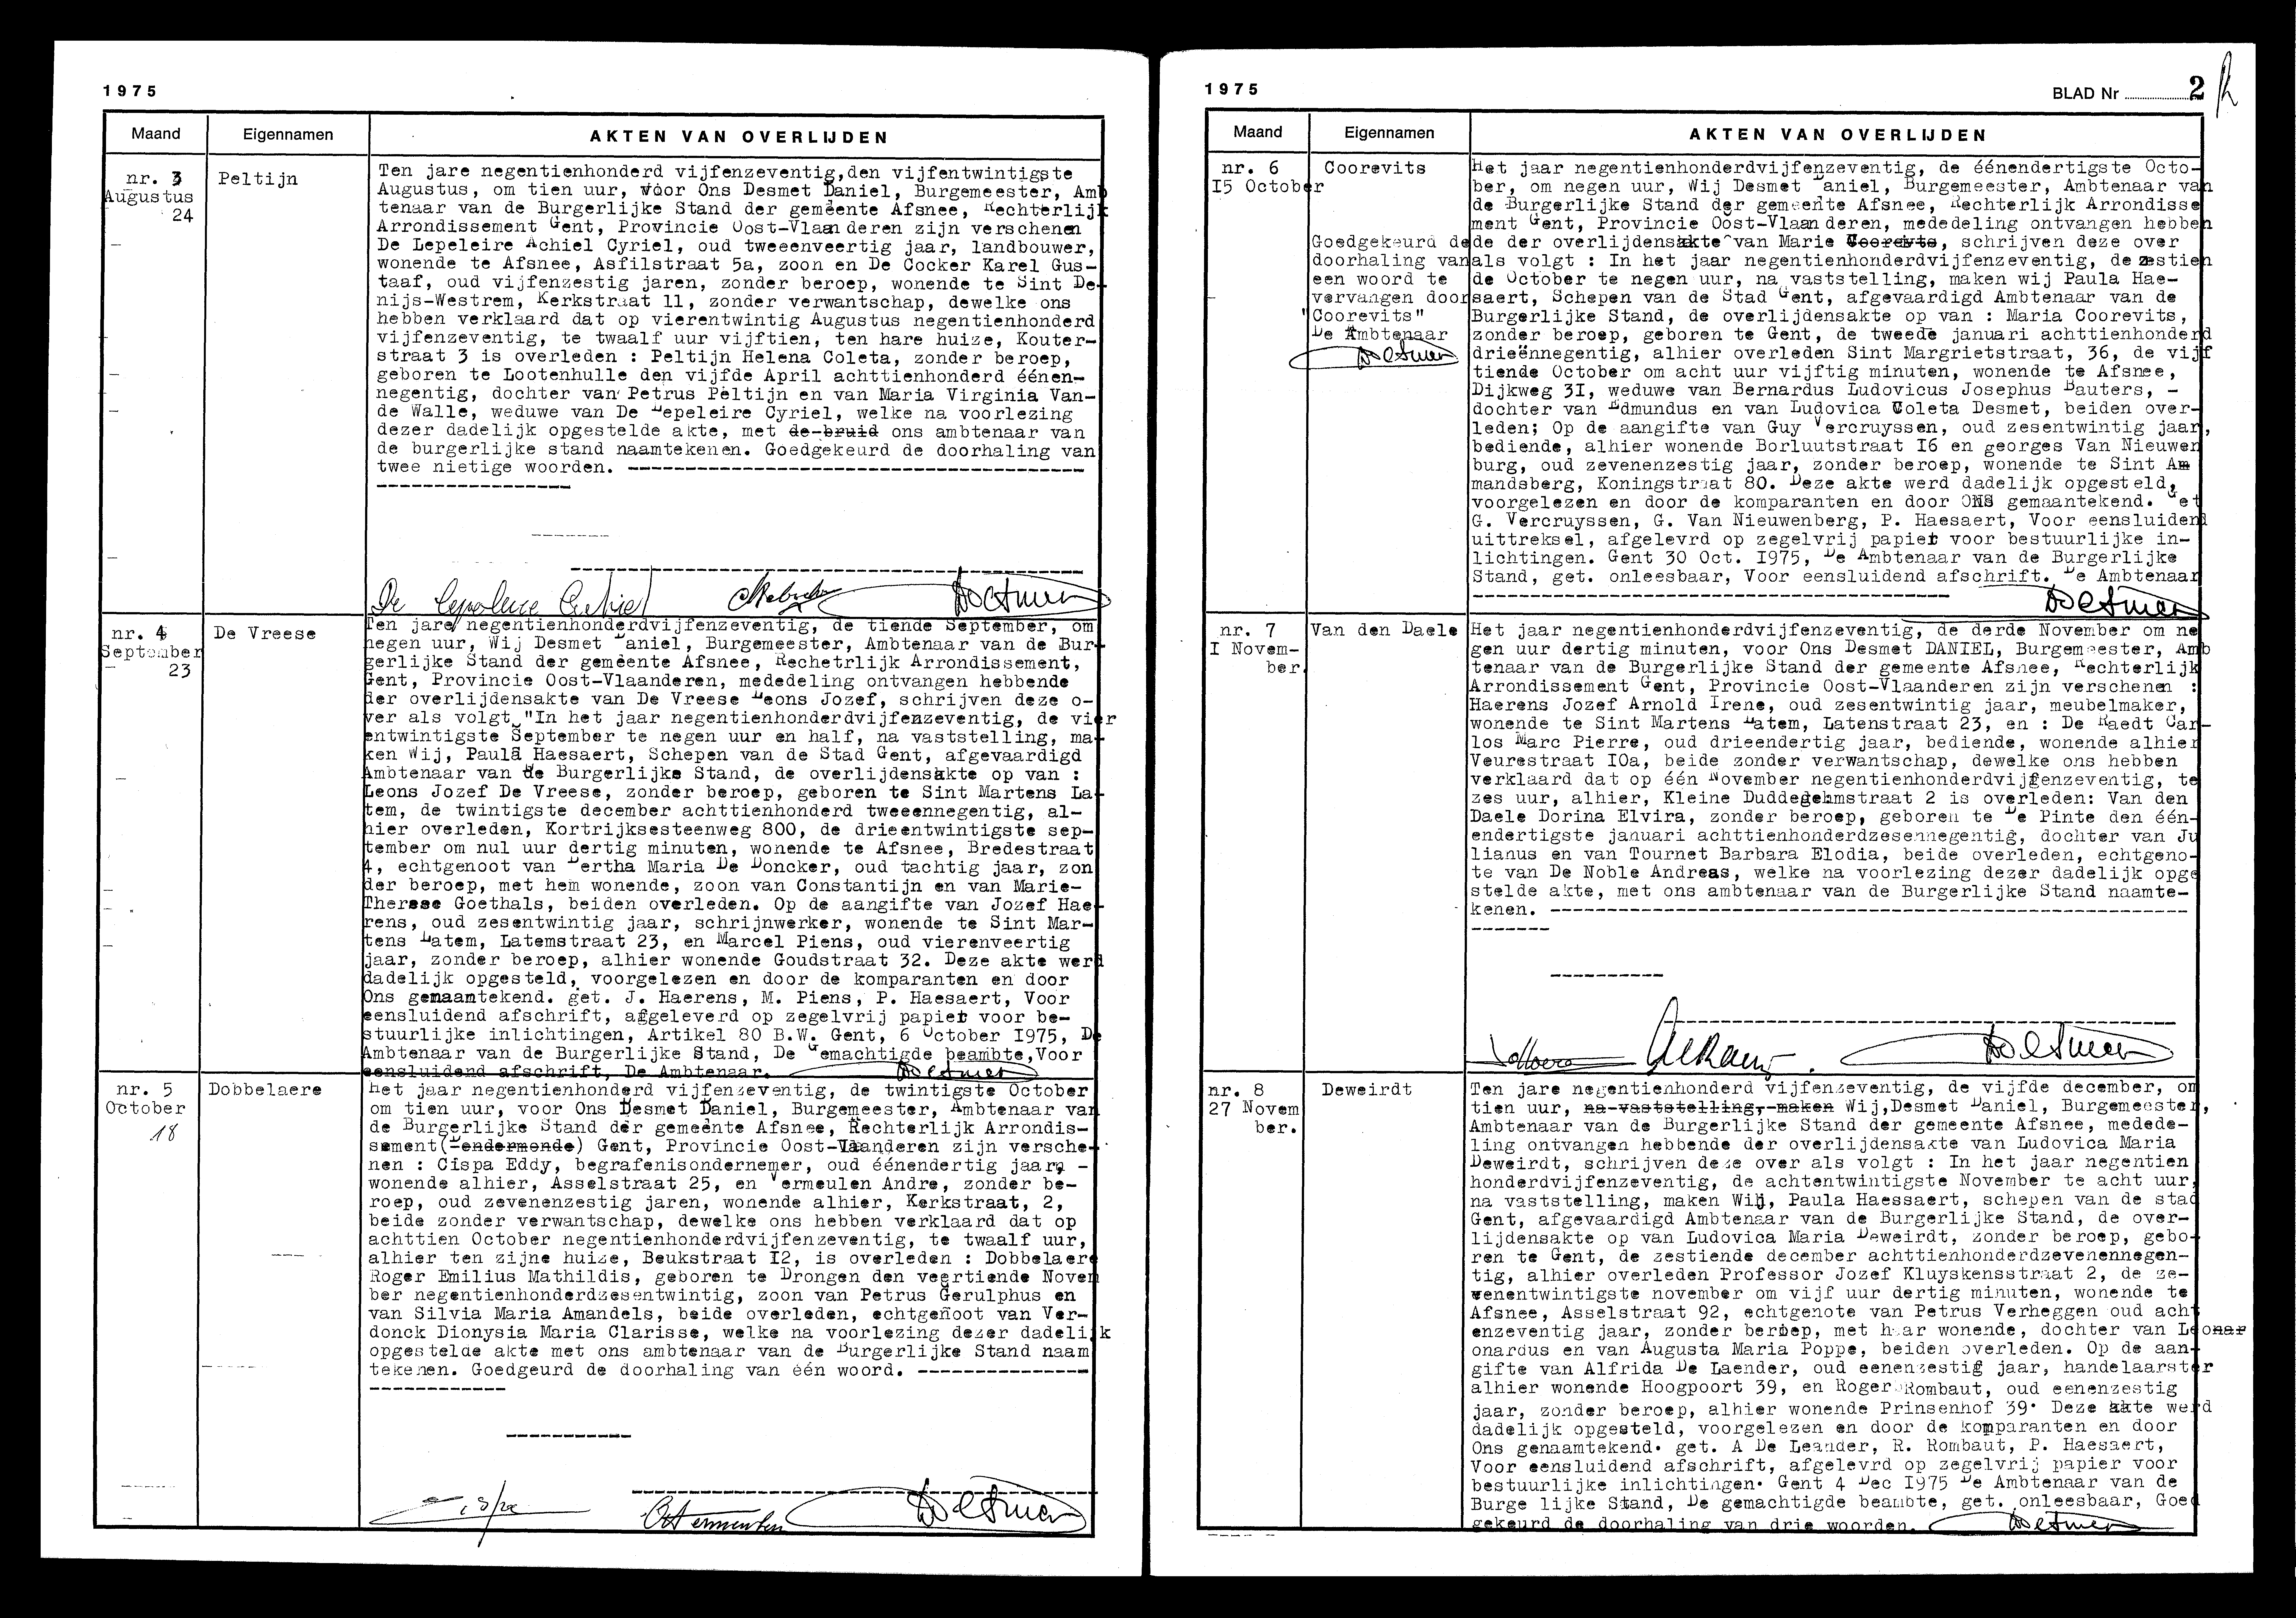 1975
Maand
Eigennamen
AKTEN VAN OVERLIJDEN
nr. 3
Augustus
24
Peltijn
Ten jare negentienhonderd vijfenzeventig,den vijfentwintigste
Augustus, om tien uur, vóor Ons Desmet Daniel, Burgemeester, Amb
tenaar van de Burgerlijke Stand der gemeente Afsnee, Rechterlijk
Arrondissement Gent, Provincie Oost-Vlaanderen zijn verschenen
De Lepeleire Achiel Cyriel, oud tweeenveertig jaar, landbouwer,
wonende te Afsnee, Asfilstraat 5a, zoon en De Cocker Karel Gus-
taaf, oud vijfenzestig jaren, zonder beroep, wonende te Sint De-
nijs-Westrem, Kerkstraat 11, zonder verwantschap, dewelke ons
hebben verklaard dat op vierentwintig Augustus negentienhonderd
vijfenzeventig, te twaalf uur vijftien, ten hare huize, Kouter-
straat 3 is overleden : Peltijn Helena Coleta, zonder beroep,
geboren te Lootenhulle den vijfde April achttienhonderd éénen-
negentig, dochter van Petrus Peltijn en van Maria Virginia Van-
de Walle, weduwe van De Lepeleire Cyriel, welke na voorlezing
dezer dadelijk opgestelde akte, met de bruid ons ambtenaar van
de burgerlijke stand naamtekenen. Goedgekeurd de doorhaling van
twee nietige woorden. ----------
De Lepeleire Achiel
Desmet
nr. 4
September
23
De Vreese
Ten jare negentienhonderdvijfenzeventig, de tiende September, om
negen uur, Wij Desmet Daniel, Burgemeester, Ambtenaar van de Bur-
gerlijke Stand der gemeente Afsnee, Rechetrlijk Arrondissement,
Gent, Provincie Oost-Vlaanderen, mededeling ontvangen hebbende
der overlijdensakte van De Vreese Leons Jozef, schrijven deze o-
ver als volgt "In het jaar negentienhonderdvijfenzeventig, de vier
entwintigste September te negen uur en half, na vaststelling, ma-
ken Wij, Paula Haesaert, Schepen van de Stad Gent, afgevaardigd
Ambtenaar van de Burgerlijke Stand, de overlijdensakte op van :
Leons Jozef De Vreese, zonder beroep, geboren te Sint Martens La-
tem, de twintigste december achttienhonderd tweeennegentig, al-
hier overleden, Kortrijksesteenweg 800, de drieentwintigste sep-
tember om nul uur dertig minuten, wonende te Afsnee, Bredestraat
4, echtgenoot van Bertha Maria De Doncker, oud tachtig jaar, zon
der beroep, met hem wonende, zoon van Constantijn en van Marie-
Therese Goethals, beiden overleden. Op de aangifte van Jozef Hae-
rens, oud zesentwintig jaar, schrijnwerker, wonende te Sint Mar-
tens Latem, Latemstraat 23, en Marcel Piens, oud vierenveertig
jaar, zonder beroep, alhier wonende Goudstraat 32. Deze akte werd
dadelijk opgesteld, voorgelezen en door de komparanten en door
Ons genaamtekend. get. J. Haerens, M. Piens, P. Haesaert, Voor
eensluidend afschrift, afgeleverd op zegelvrij papier voor be-
stuurlijke inlichtingen, Artikel 80 B.W. Gent, 6 October I975, De
Ambtenaar van de Burgerlijke Stand, De Gemachtigde beambte,Voor
eensluidend afschrift, De Ambtenaar. Desmet
nr. 5
October
18
Dobbelaere
het jaar negentienhonderd vijfenzeventig, de twintigste October
om tien uur, voor Ons Desmet Daniel, Burgemeester, Ambtenaar van
de Burgerlijke Stand der gemeente Afsnee, Rechterlijk Arrondis-
sement(Dendermonde) Gent, Provincie Oost-Vlaanderen zijn versche-
nen : Cispa Eddy, begrafenisondernemer, oud éénendertig jaar, -
wonende alhier, Asselstraat 25, en Vermeulen Andre, zonder be-
roep, oud zevenenzestig jaren, wonende alhier, Kerkstraat, 2,
beide zonder verwantschap, dewelke ons hebben verklaard dat op
achttien October negentienhonderdvijfenzeventig, te twaalf uur,
alhier ten zijne huize, Beukstraat I2, is overleden : Dobbelaere
Roger Emilius Mathildis, geboren te Drongen den veertiende Novem
ber negentienhonderdzesentwintig, zoon van Petrus Gerulphus en
van Silvia Maria Amandels, beide overleden, echtgenoot van Ver-
donck Dionysia Maria Clarisse, welke na voorlezing dezer dadelijk
opgestelde akte met ons ambtenaar van de Burgerlijke Stand naam
tekenen. Goedgeurd de doorhaling van één woord. ----------
Desmet
1975
BLAD Nr 2
Maand
Eigennamen
AKTEN VAN OVERLIJDEN
nr. 6
I5 October
Coorevits
Goedgekeurd de
doorhaling van
een woord te
vervangen door
"Coorevits"
De Ambtenaar
Desmet
Het jaar negentienhonderdvijfenzeventig, de éénendertigste Octo-
ber, om negen uur, Wij Desmet Daniel, Burgemeester, Ambtenaar van
de Burgerlijke Stand der gemeente Afsnee, Rechterlijk Arrondisse
ment Gent, Provincie Oost-Vlaanderen, mededeling ontvangen hebben
de der overlijdensakte van Marie Coorevts, schrijven deze over
als volgt : In het jaar negentienhonderdvijfenzeventig, de zestien
de October te negen uur, na vaststelling, maken wij Paula Hae-
saert, Schepen van de Stad Gent, afgevaardigd Ambtenaar van de
Burgerlijke Stand, de overlijdensakte op van : Maria Coorevits,
zonder beroep, geboren te Gent, de tweede januari achttienhonderd
drieënnegentig, alhier overleden Sint Margrietstraat, 36, de vijf
tiende October om acht uur vijftig minuten, wonende te Afsnee,
Dijkweg 3I, weduwe van Bernardus Ludovicus Josephus Bauters, -
dochter van Edmundus en van Ludovica Coleta Desmet, beiden over-
leden; Op de aangifte van Guy Vercruyssen, oud zesentwintig jaar,
bediende, alhier wonende Borluutstraat I6 en georges Van Nieuwen
burg, oud zevenenzestig jaar, zonder beroep, wonende te Sint Am
mandsberg, Koningstraat 80. Deze akte werd dadelijk opgesteld,
voorgelezen en door de komparanten en door ONS gemaantekend. Get
G. Vercruyssen, G. Van Nieuwenberg, P. Haesaert, Voor eensluidend
uittreksel, afgelevrd op zegelvrij papier voor bestuurlijke in-
lichtingen. Gent 30 Oct. I975, De Ambtenaar van de Burgerlijke
Stand, get. onleesbaar, Voor eensluidend afschrift. De Ambtenaar
Desmet
nr. 7
I Novem-
ber.
Van den Daele
Het jaar negentienhonderdvijfenzeventig, de derde November om ne
gen uur dertig minuten, voor Ons Desmet DANIEL, Burgemeester, Amb
tenaar van de Burgerlijke Stand der gemeente Afsnee, Rechterlijk
Arrondissement Gent, Provincie Oost-Vlaanderen zijn verschenen :
Haerens Jozef Arnold Irene, oud zesentwintig jaar, meubelmaker,
wonende te Sint Martens Latem, Latenstraat 23, en : De Raedt Car-
los Marc Pierre, oud drieendertig jaar, bediende, wonende alhier
Veurestraat I0a, beide zonder verwantschap, dewelke ons hebben
verklaard dat op één November negentienhonderdvijfenzeventig, te
zes uur, alhier, Kleine Duddegehmstraat 2 is overleden: Van den
Daele Dorina Elvira, zonder beroep, geboren te De Pinte den één-
endertigste januari achttienhonderdzesennegentig, dochter van Ju
lianus en van Tournet Barbara Elodia, beide overleden, echtgeno-
te van De Noble Andreas, welke na voorlezing dezer dadelijk opge
stelde akte, met ons ambtenaar van de Burgerlijke Stand naamte-
kenen. ----------
Desmet
nr. 8
27 Novem
ber.
Deweirdt
Ten jare negentienhonderd vijfenzeventig, de vijfde december, om
tien uur, na vaststelling, maken Wij,Desmet Daniel, Burgemeester,
Ambtenaar van de Burgerlijke Stand der gemeente Afsnee, medede-
ling ontvangen hebbende der overlijdensakte van Ludovica Maria
Deweirdt, schrijven deze over als volgt : In het jaar negentien
honderdvijfenzeventig, de achtentwintigste November te acht uur,
na vaststelling, maken Wij, Paula Haessaert, schepen van de stad
Gent, afgevaardigd Ambtenaar van de Burgerlijke Stand, de over-
lijdensakte op van Ludovica Maria Deweirdt, zonder beroep, gebo-
ren te Gent, de zestiende december achttienhonderdzevenennegen-
tig, alhier overleden Professor Jozef Kluyskensstraat 2, de ze-
venentwintigste november om vijf uur dertig minuten, wonende te
Afsnee, Asselstraat 92, echtgenote van Petrus Verheggen oud acht
enzeventig jaar, zonder beroep, met haar wonende, dochter van Leonar
onardus en van Augusta Maria Poppe, beiden overleden. Op de aan-
gifte van Alfrida De Laender, oud eenenzestig jaar, handelaarster
alhier wonende Hoogpoort 39, en Roger Rombaut, oud eenenzestig
jaar, zonder beroep, alhier wonende Prinsenhof 39. Deze akte werd
dadelijk opgesteld, voorgelezen en door de komparanten en door
Ons genaamtekend. get. A De Leander, R. Rombaut, P. Haesaert,
Voor eensluidend afschrift, afgelevrd op zegelvrij papier voor
bestuurlijke inlichtingen. Gent 4 Dec I975 De Ambtenaar van de
Burge lijke Stand, De gemachtigde beambte, get. onleesbaar, Goed
gekeurd de doorhaling van drie woorden. Desmet